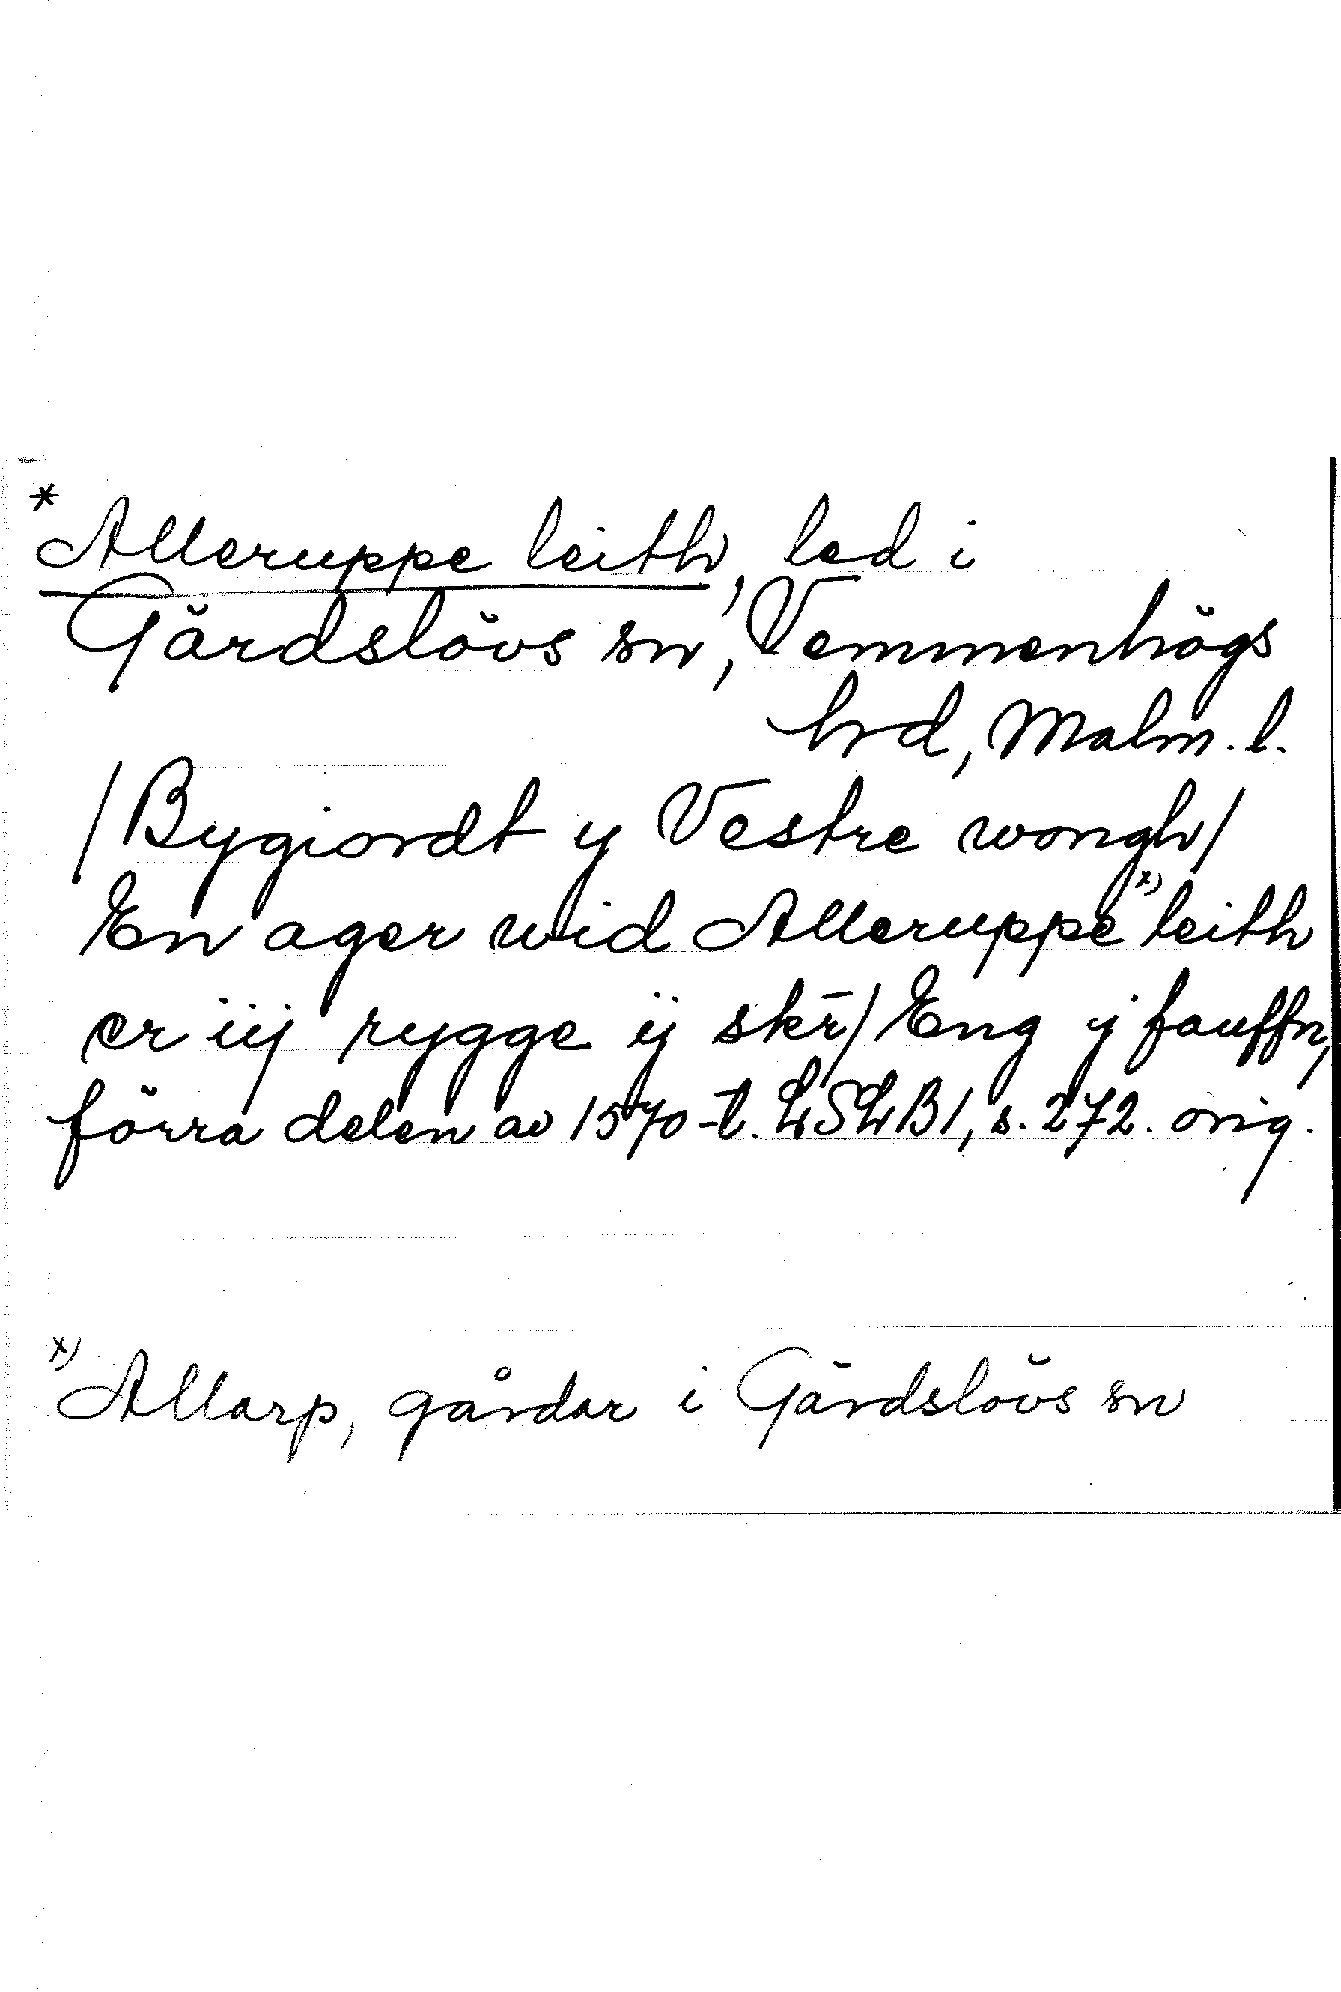 * Alleruppe leith, led i
Gärdslövs sn, Vemmenhögs
hrd, Malm. l.
/Bygiordt y Vestre wongh/
En ager wid Alleruppe x) leith
er iij rygge ij skr̄/ Eng y fauffn,
förra delen av 1570-t. LSLB1, s. 272. orig.
x) Allarp, gårdar i Gärdslövs sn